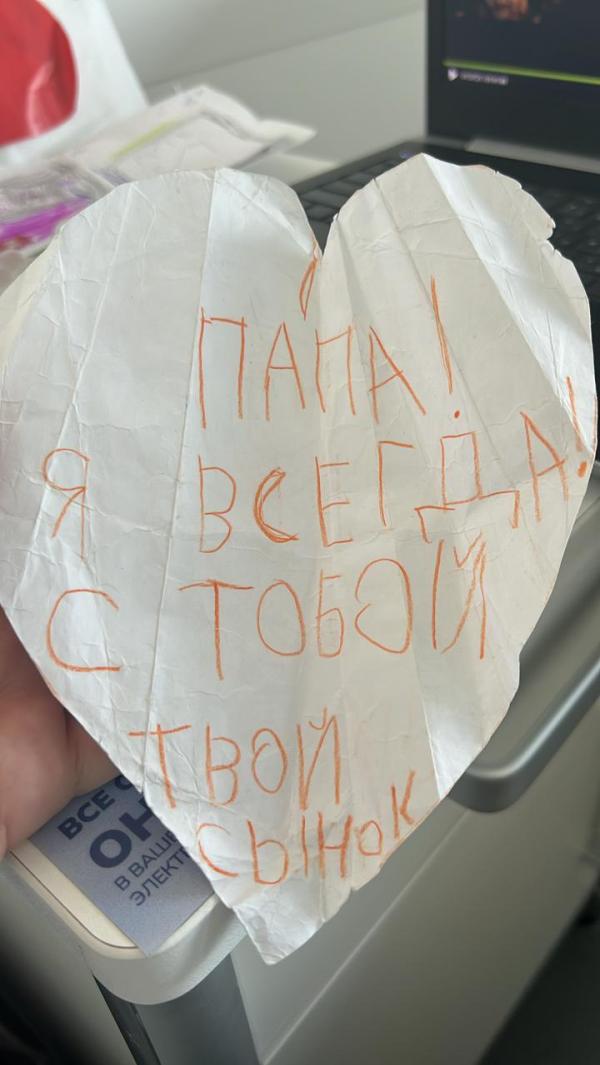 ПАПА!
Я ВСЕГДА!
С ТОБОЙ
ТВОЙ
СЫНОК
ВСЕ
ОН
В ВАШ
ЭЛЕКТ